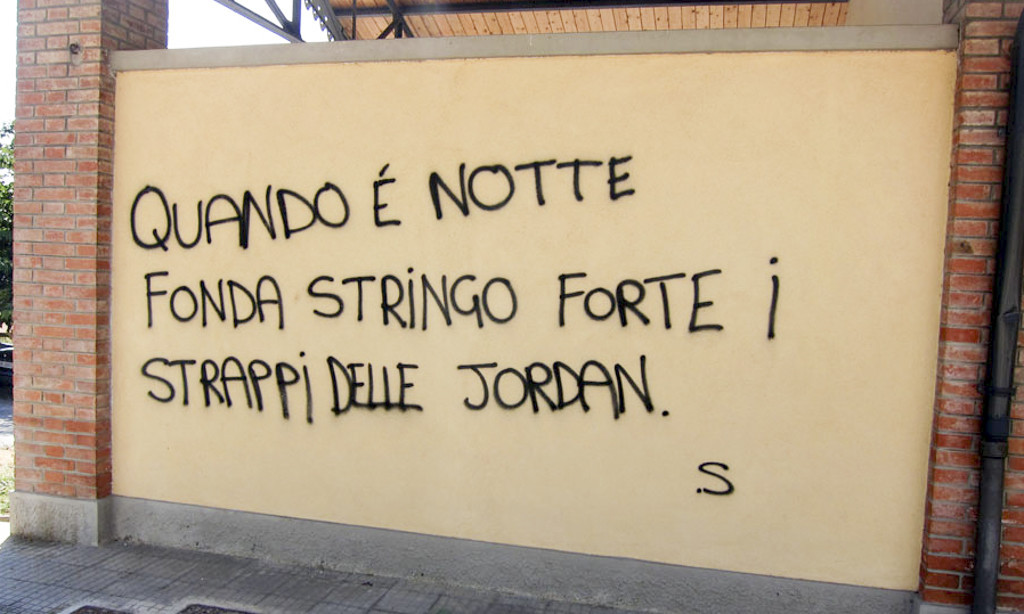 QUANDO É NOTTE
FONDA STRiNGO FORTE i
STRAPPi DELLE JORDAN.
.S